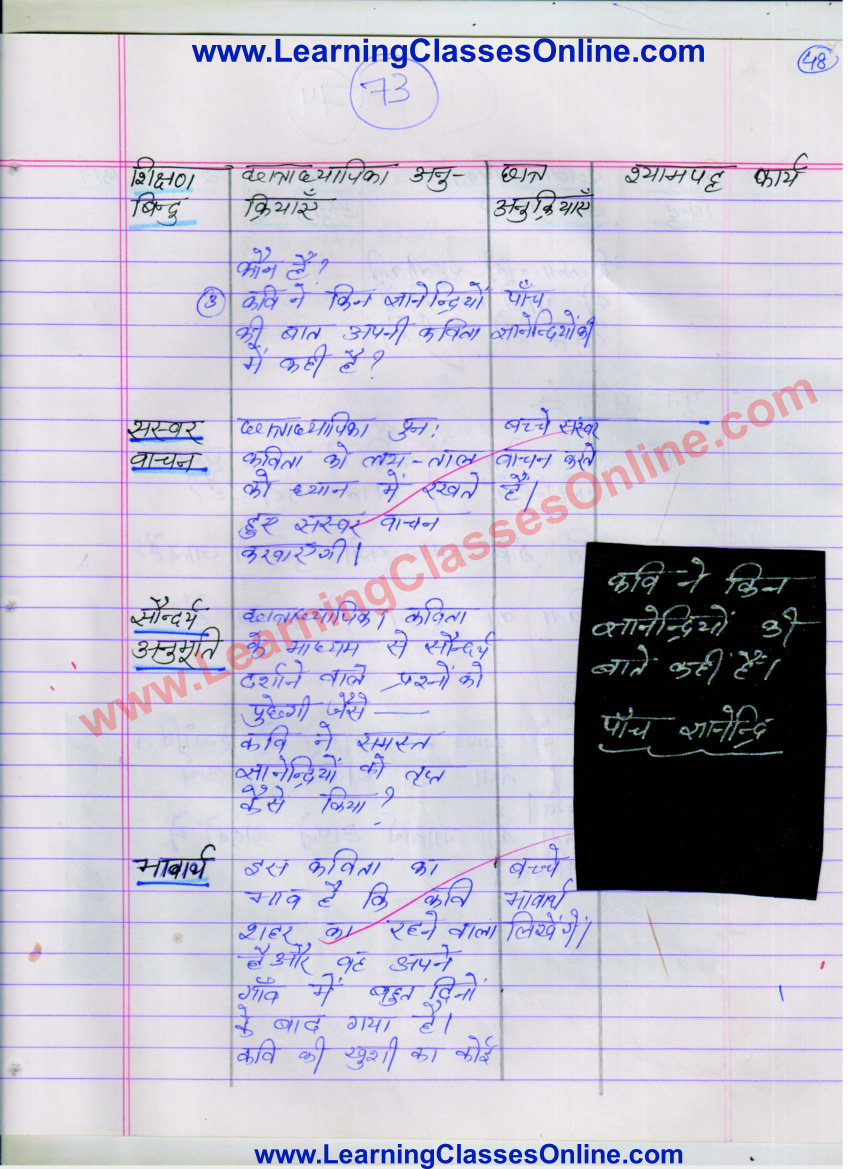 www.LearningClassesOnline.com
48
73
शिक्षण छात्राध्यापिका अनु- छात्र श्यामपट्ट कार्य
बिन्दु क्रियाएँ अनुक्रियाएँ
कौन हैं?
③ कवि ने किन ज्ञानेन्द्रियों पाँच
की बात अपनी कविता ज्ञानेन्द्रियों की
में कही है?
सस्वर छात्राध्यापिका पुनः बच्चे सस्वर
वाचन कविता को लय-ताल वाचन करते
को ध्यान में रखते हैं।
हुए सस्वर वाचन
करवाएगी।
सौन्दर्य छात्राध्यापिका कविता
अनुभूति के माध्यम से सौन्दर्य
दर्शाने वाले प्रश्नों को
पुछेगी जैसे —
कवि ने समस्त
ज्ञानेन्द्रियों को तृप्त
कैसे किया?
कवि ने किन
ज्ञानेन्द्रियों की
बाते कहीं हैं।
पाँच ज्ञानेन्द्रि
भावार्थ इस कविता का बच्चे
भाव है कि कवि भावार्थ
शहर का रहने वाला लिखेंगें।
है और वह अपने
गाँव में बहुत दिनों
के बाद गया है।
कवि की खुशी का कोई
www.LearningClassesOnline.com
www.LearningClassesOnline.com